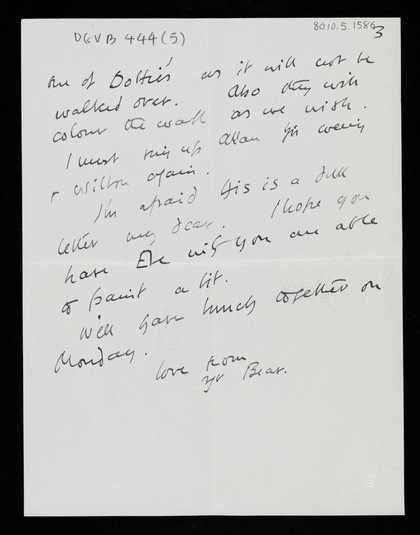 DGVB 444(5)
8010.5.1584
3
one of Dottie's as it will not be
walked over. Also they will
colour the wall as we wish.
I must ring up Allan this evening
+ Wilton again.
I'm afraid this is a dull
letter my dear. I hope you
have Eve with you and are able
to paint a bit.
We'll have lunch together on
Monday.
love from
yr Bear.